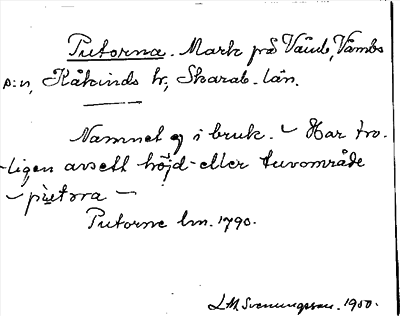 Putorna. Mark på Vämb, Vämbs
s:n, Kåkinds hr, Skarab. län.
Namnet ej i bruk. – Har tro-
ligen avsett höjd- eller tuvområde
– putorra –
Putorne lm. 1790.
L.M. Svenungsson. 1950.